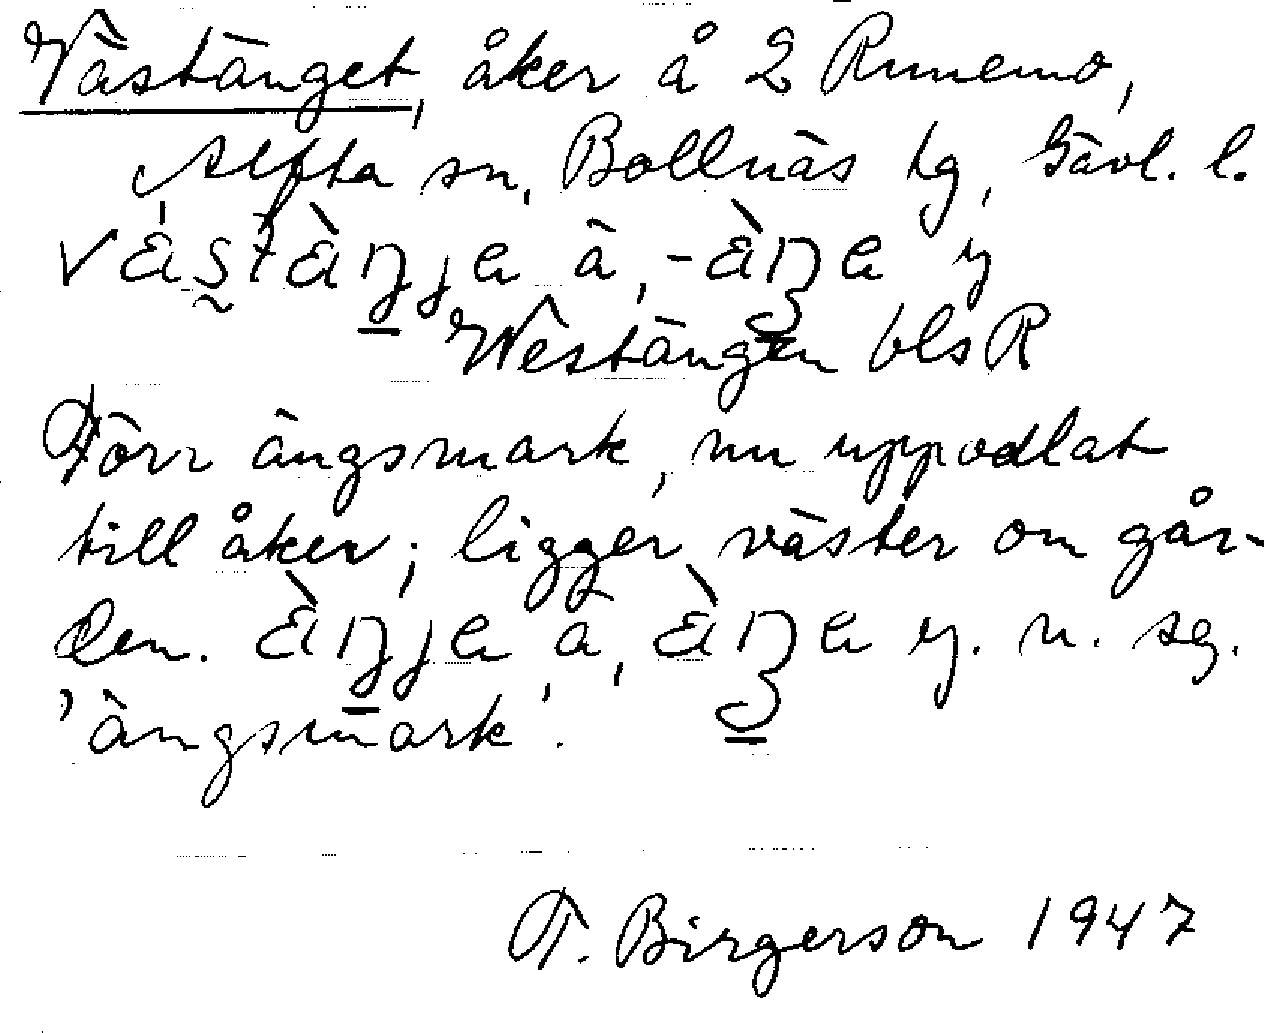 Västänget, åker å 2 Runemo,
Alfta sn, Bollnäs tg, Gävl. l.
väst äŋje ä, -äŋe y
Westängen blsR
Förr ängsmark, nu uppodlat
till åker; ligger väster om går-
den. äŋje ä, äŋe y. n. sg.
'ängsmark'.
T. Birgerson 1947